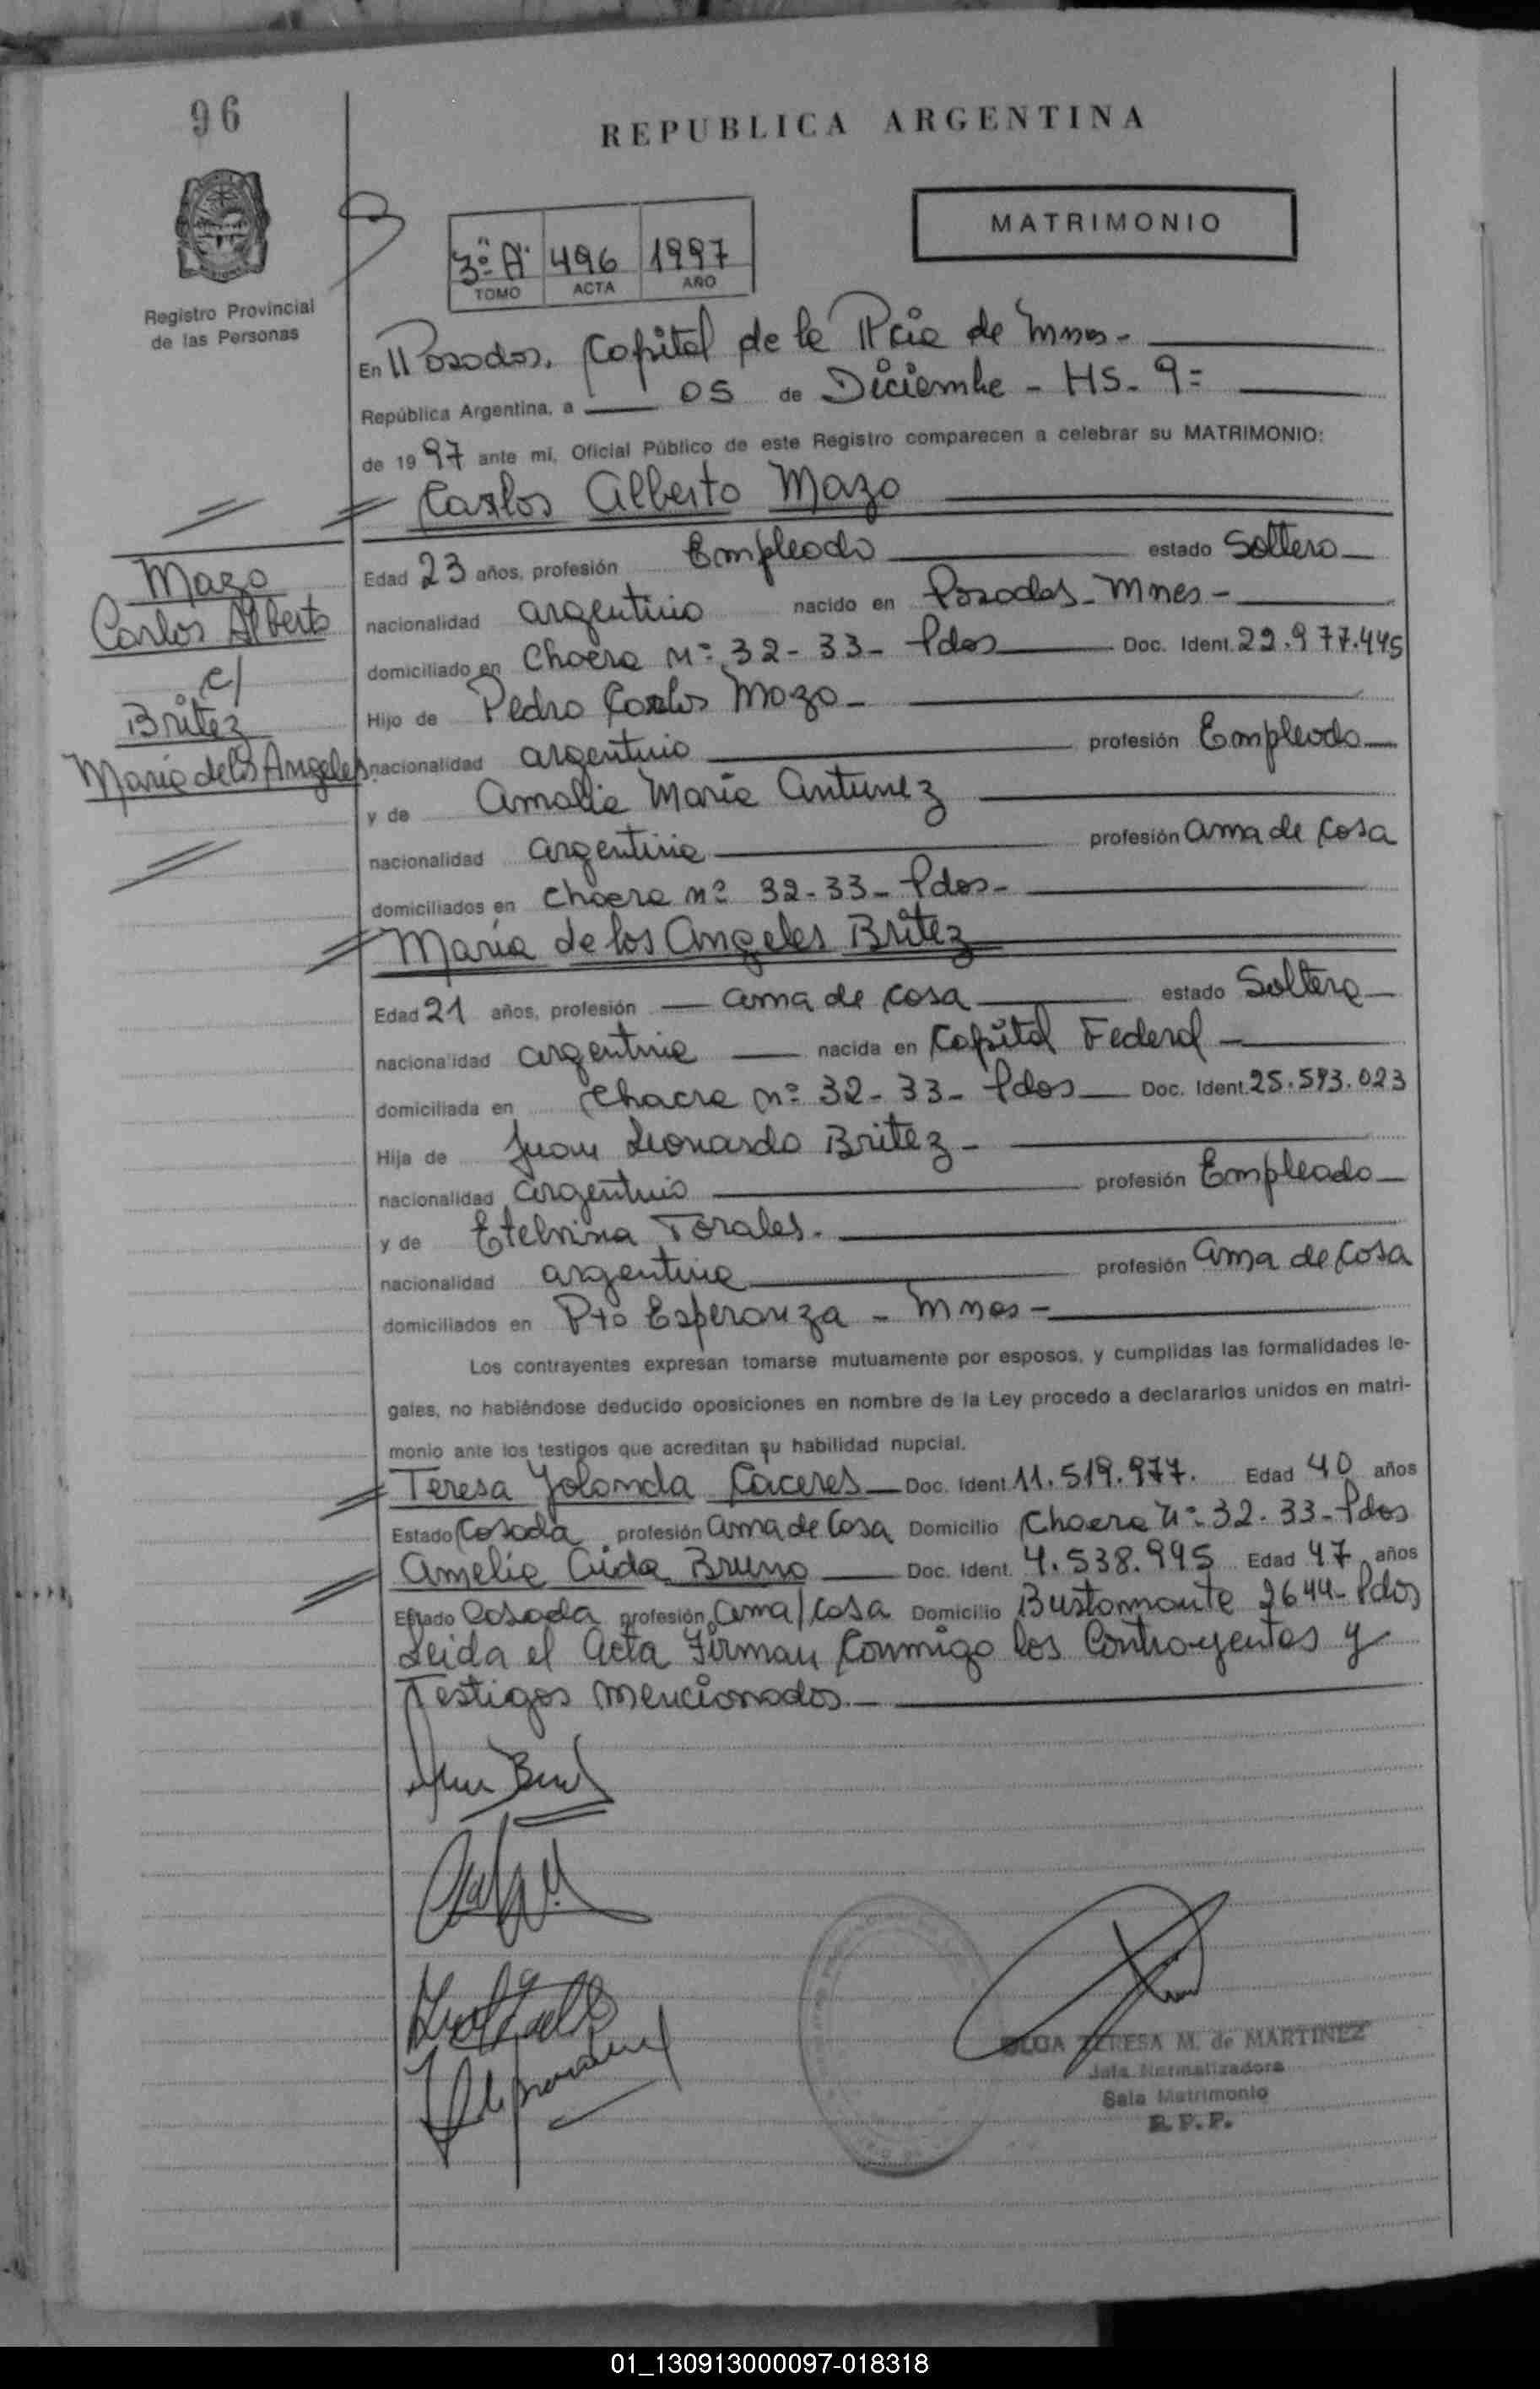 96
REPUBLICA ARGENTINA
MATRIMONIO
3º A 496 1997
TOMO ACTA AÑO
Registro Provincial
de las Personas
En Posadas, Capital de la Pcia de Mnes -
República Argentina, a 05 de Diciembre - HS. 9 =
de 1997 ante mí, Oficial Público de este Registro comparecen a celebrar su MATRIMONIO:
Carlos Alberto Mazo
Mazo
Carlos Alberto
c/
Britez
María de los Angeles
Edad 23 años, profesión Empleado estado Soltero
nacionalidad argentino nacido en Posadas - Mnes -
domiciliado en Chacra nº 32-33- Pdas Doc. Ident. 22.977.445
Hijo de Pedro Carlos Mazo -
nacionalidad argentino profesión Empleado
y de Amalia María Antunez
nacionalidad argentina profesión ama de casa
domiciliados en Chacra nº 32-33- Pdas -
María de los Angeles Britez
Edad 21 años, profesión ama de casa estado Soltera
nacionalidad argentina nacida en Capital Federal -
domiciliada en Chacra nº 32-33- Pdas Doc. Ident. 25.593.023
Hija de Juan Leonardo Britez -
nacionalidad argentino profesión Empleado
y de Etelvina Torales.
nacionalidad argentina profesión ama de casa
domiciliados en Pto Esperanza - Mnes -
Los contrayentes expresan tomarse mutuamente por esposos, y cumplidas las formalidades le-
gales, no habiéndose deducido oposiciones en nombre de la Ley procedo a declararlos unidos en matri-
monio ante los testigos que acreditan su habilidad nupcial.
Teresa Yolanda Caceres Doc. Ident 11.519.977. Edad 40 años
Estado Casada profesión ama de casa Domicilio Chacra nº 32-33- Pdas
Amelia Aida Bruno Doc. Ident. 4.538.995 Edad 47 años
Estado Casada profesión ama/casa Domicilio Bustamante 2644- Pdas
Leida el acta Firman Conmigo los Contrayentes y
Testigos mencionados.
OLGA TERESA M. de MARTINEZ
Jefa Normalizadora
Sala Matrimonio
R.P.P.
01_130913000097-018318